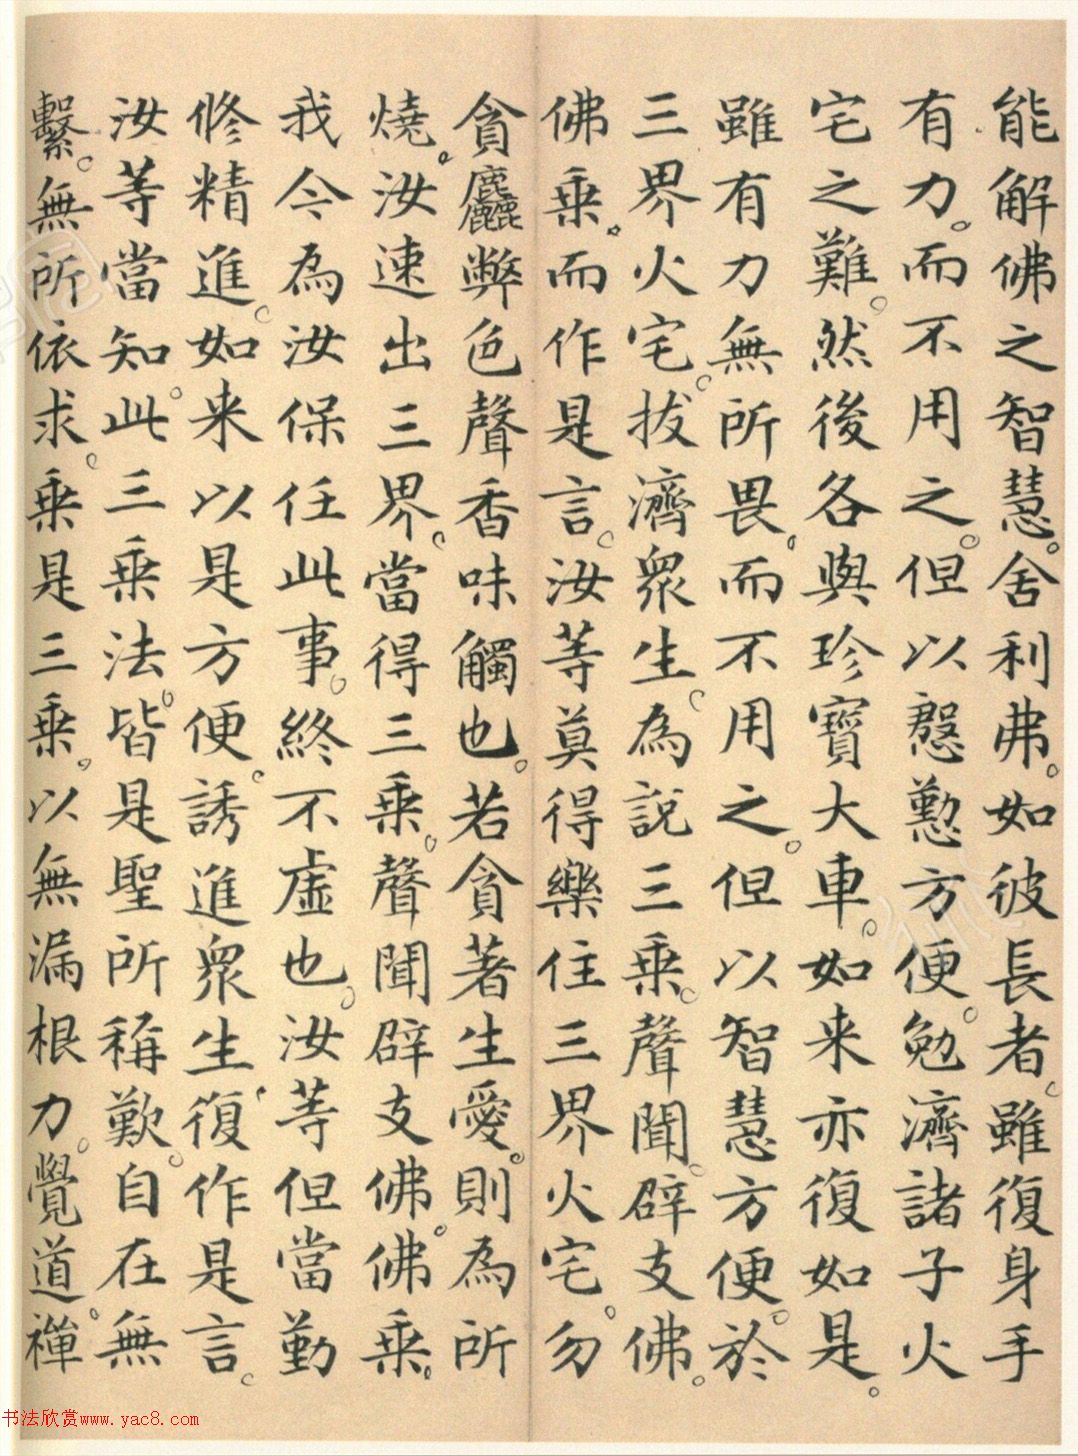 能解佛之智慧。舍利弗。如彼長者。雖復身手
有力。而不用之。但以慇懃方便。勉濟諸子火
宅之難。然後各與珍寶大車。如来亦復如是。
雖有力無所畏。而不用之。但以智慧方便。於
三界火宅。拔濟眾生。為說三乘。聲聞。辟支佛。
佛乘。而作是言。汝等莫得樂住三界火宅。勿
貪麤弊色聲香味觸也。若貪著生愛。則為所
燒。汝速出三界。當得三乘。聲聞辟支佛。佛乘。
我今為汝保任此事。終不虛也。汝等但當勤
修精進。如来以是方便。誘進眾生。復作是言。
汝等當知。此三乘法。皆是聖所稱歎。自在無
繫。無所依求。乘是三乘。以無漏根力。覺道。禪
书法欣赏www.yac8.com